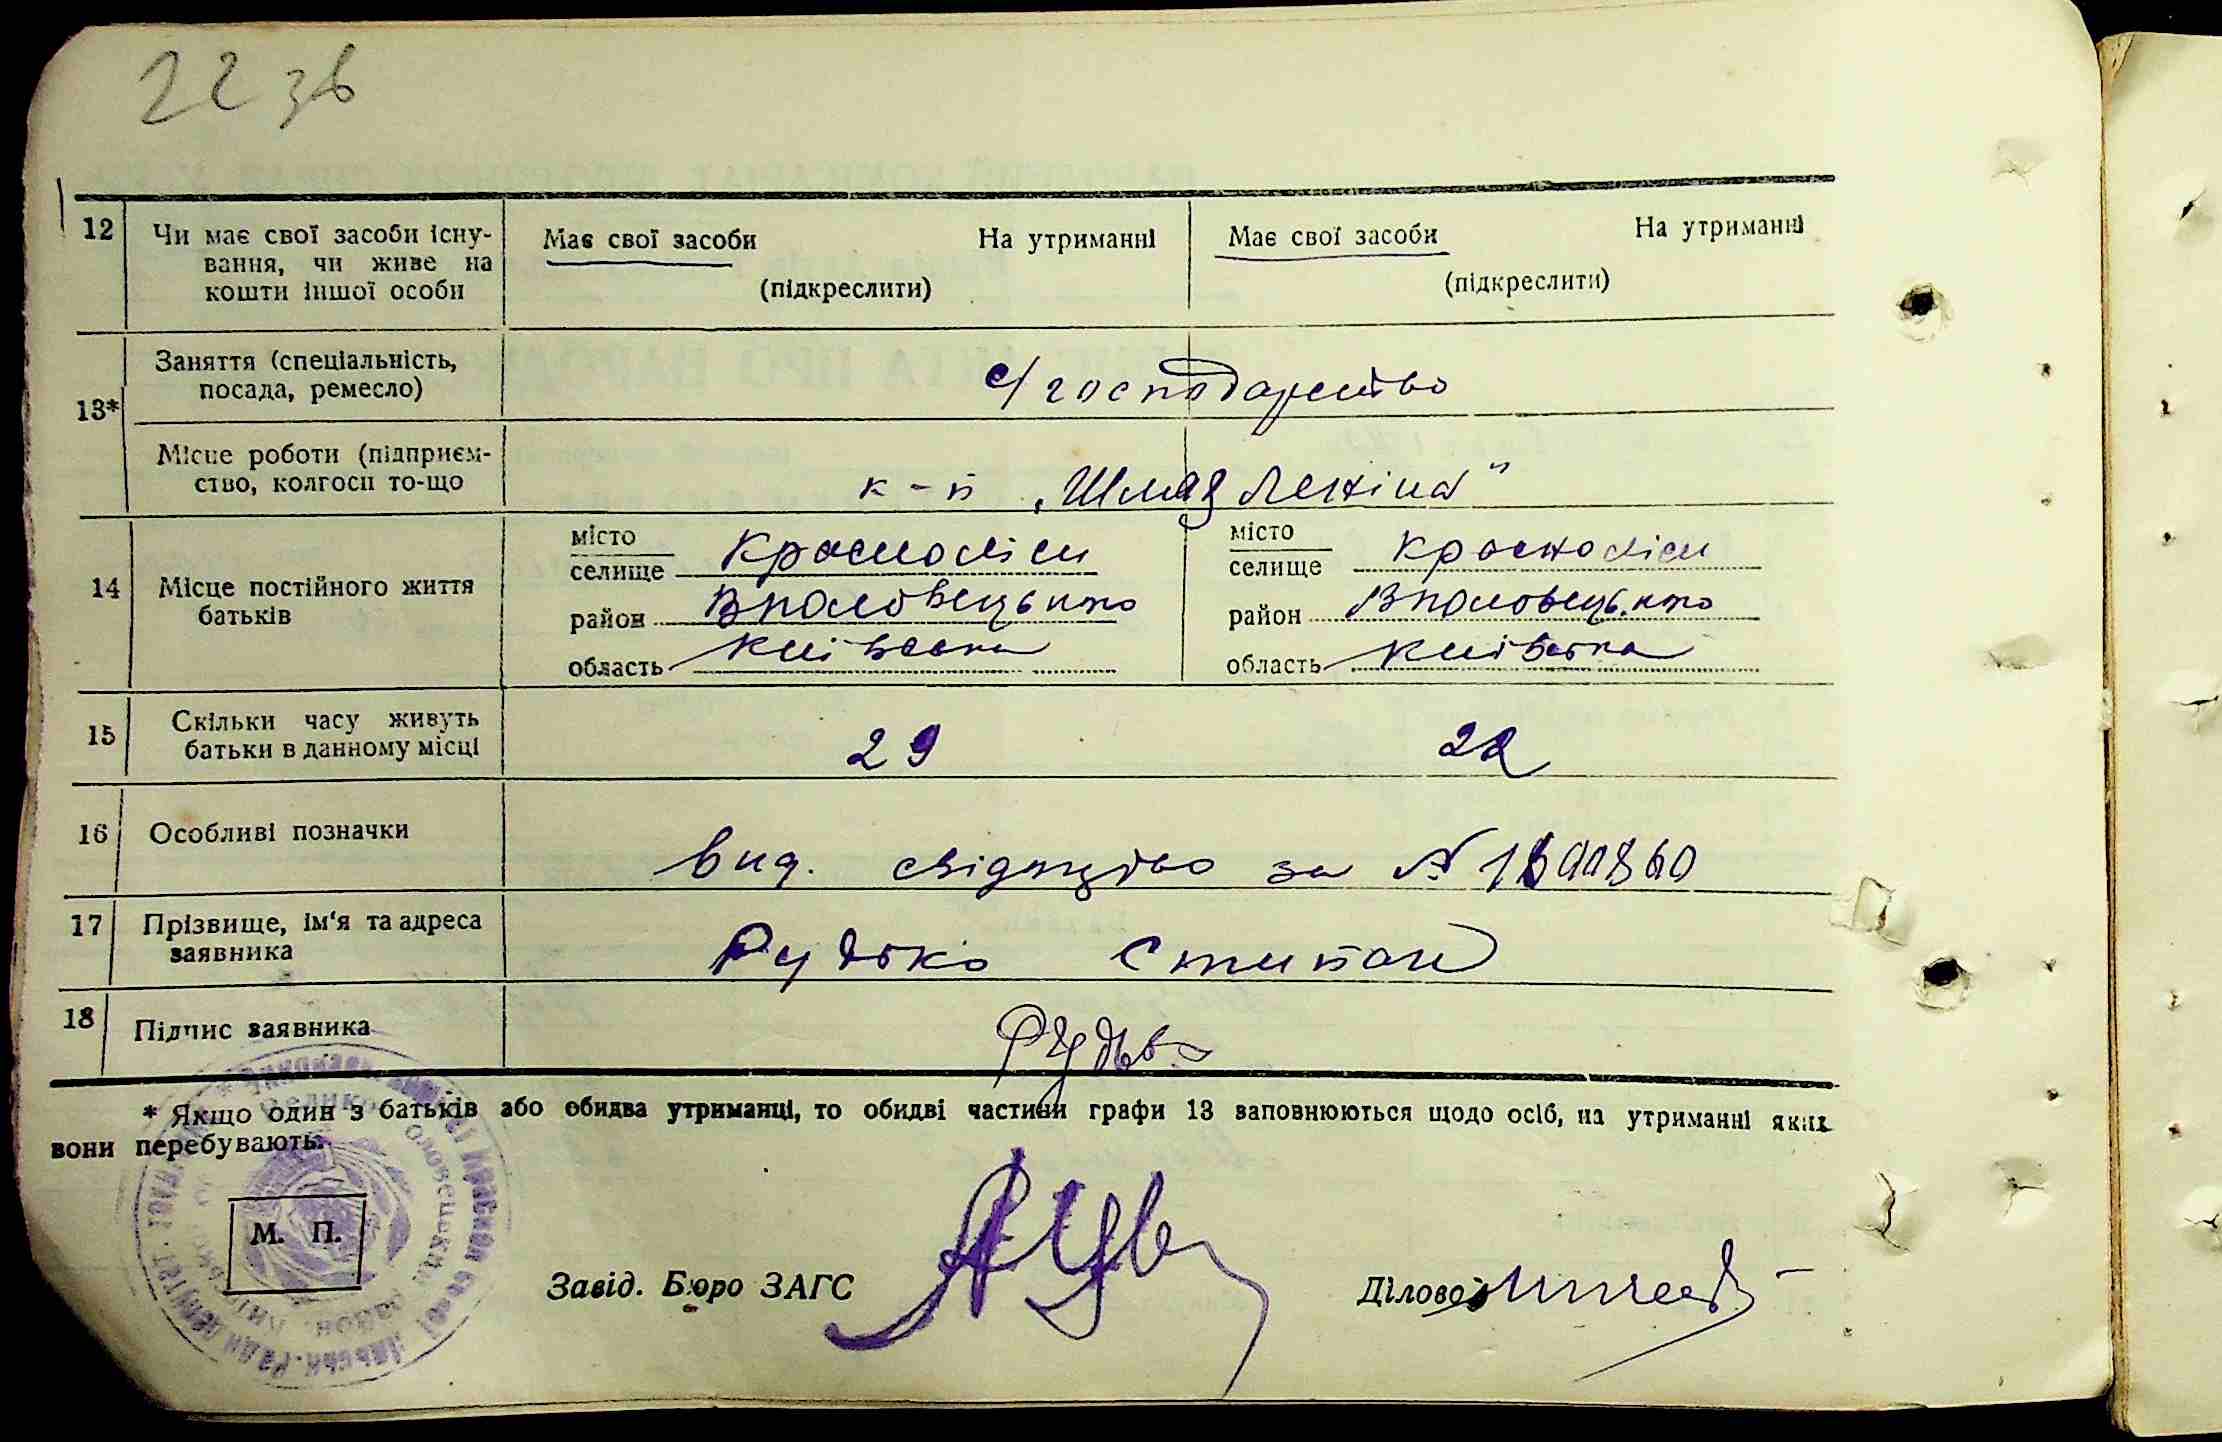 22 зв
12 Чи має свої засоби існу-
вання, чи живе на
кошти іншої особи
Має свої засоби На утриманні
(підкреслити)
Має свої засоби На утриманні
(підкреслити)
13* Заняття (спеціальність,
посада, ремесло)
с/господарство
Місце роботи (підприєм-
ство, колгосп то-що
к-п „Шлях Леніна"
14 Місце постійного життя
батьків
місто
селище Красноліси
район В половецького
область Київська
місто
селище Красноліси
район В половецького
область Київська
15 Скільки часу живуть
батьки в данному місці
29 22
16 Особливі позначки
вид. свідоцтво за №
17 Прізвище, ім'я та адреса
заявника
Рудько Степан
18 Підпис заявника
Рудько
* Якщо один з батьків або обидва утриманці, то обидві частини графи 13 заповнюються щодо осіб, на утриманні яких
вони перебувають.
М. П.
Завід. Бюро ЗАГС
Діловод